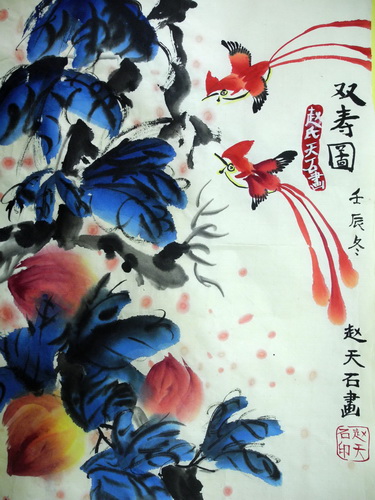 双寿圖
壬辰冬
赵天石畫
赵氏天石畫
赵天
石印